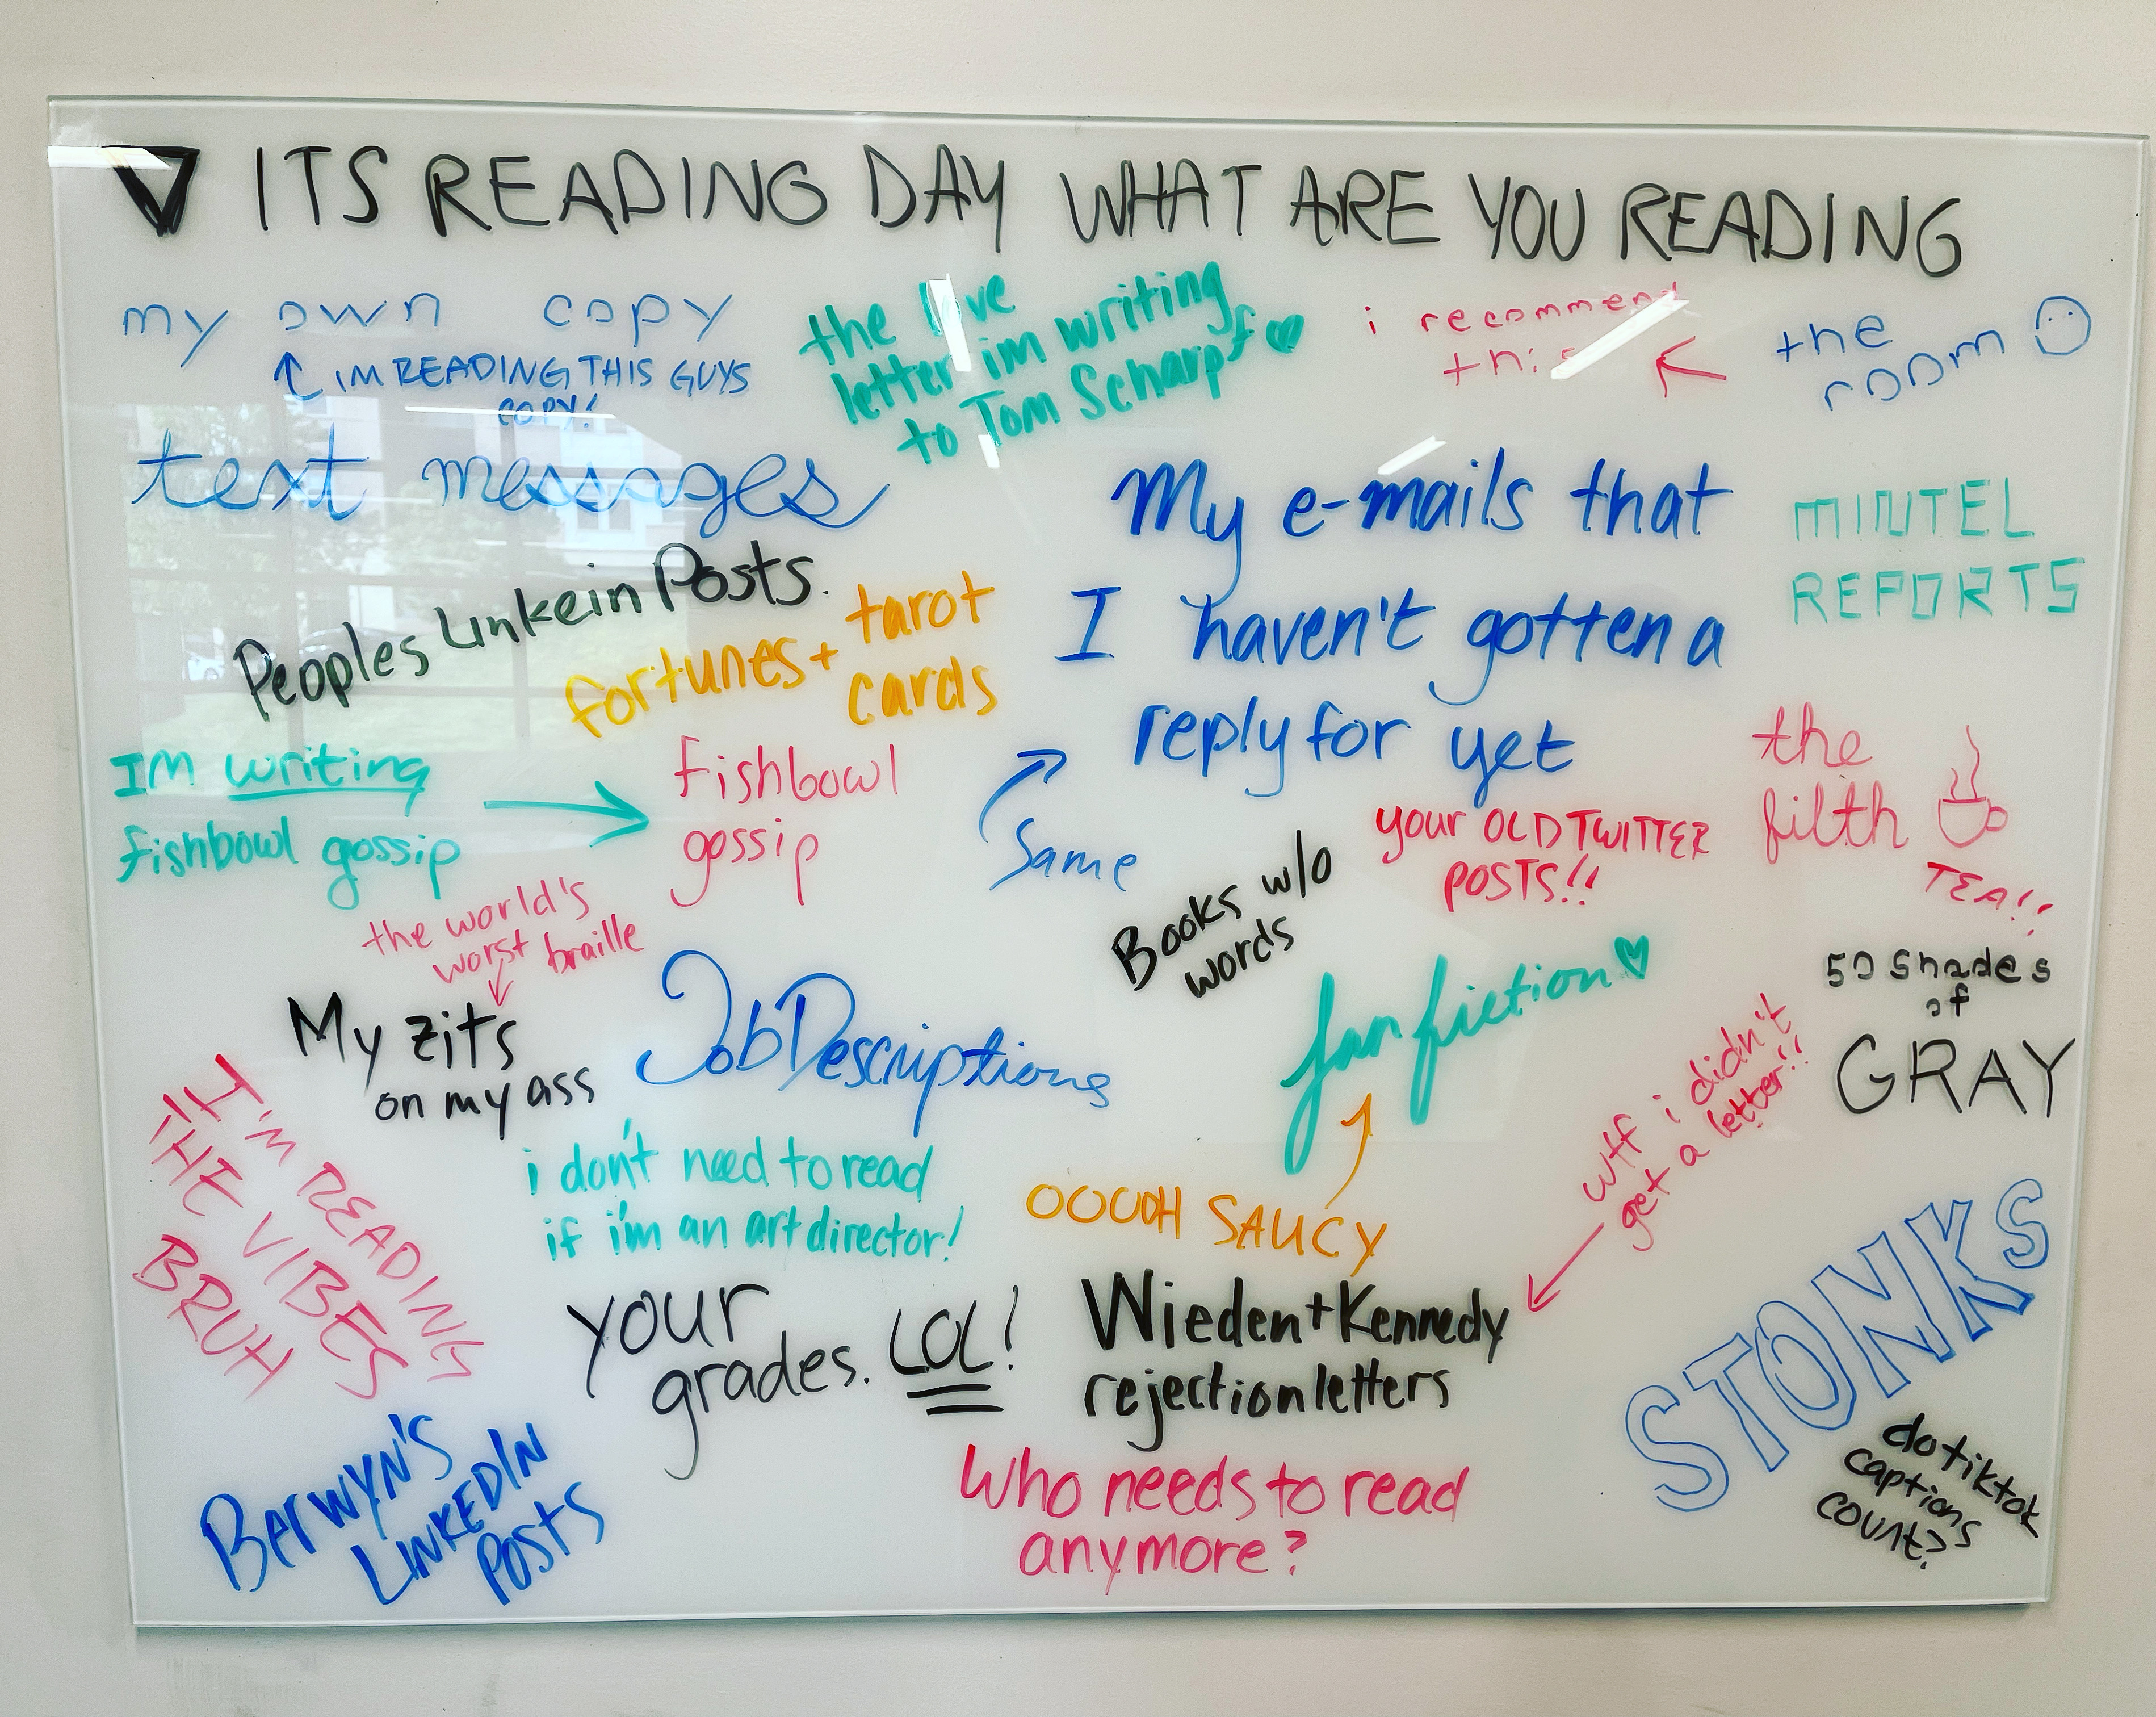 ITS READING DAY WHAT ARE YOU READING
my own copy
IM READING THIS GUYS
COPY!
the love
letter im writing
to Tom Scharpf
i recommend
this
the
room
text messages
My e-mails that
I haven't gotten a
reply for yet
MINTEL
REPORTS
Peoples Linkein Posts.
fortunes + tarot
cards
Im writing
fishbowl gossip
fishbowl
gossip
Same
your OLD TWITTER
POSTS!!
the
filth
TEA!!
Books w/o
words
the world's
worst braille
My zits
on my ass
Job Descriptions
fan fiction
50 shades
of
GRAY
wtf i didn't
get a letter!!
I'M READING
THE VIBES
BRUH
i don't need to read
if i'm an art director!
OOOOH SAUCY
your
grades. LOL!
Wieden+Kennedy
rejection letters
STONKS
Berwyn's
LINKEDIN
Posts
Who needs to read
anymore?
do tiktok
captions
count?